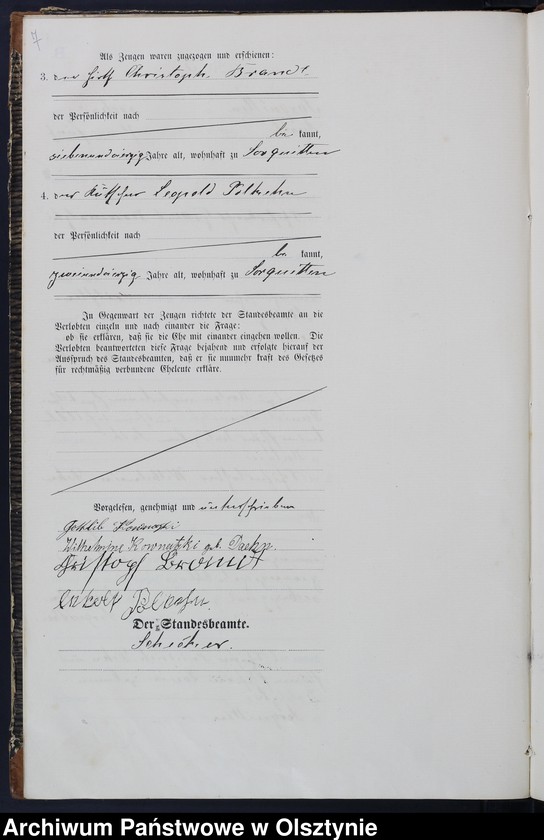 7
Als Zeugen waren zugezogen und erschienen:
3. der Christoph Brandt
der Persönlichkeit nach
be kannt,
siebenundvierzig Jahre alt, wohnhaft zu Sorquitten
4. der Kutscher Leopold
der Persönlichkeit nach
be kannt,
zweiundvierzig Jahre alt, wohnhaft zu Sorquitten
In Gegenwart der Zeugen richtete der Standesbeamte an die
Verlobten einzeln und nach einander die Frage:
ob sie erklären, daß sie die Ehe mit einander eingehen wollen. Die
Verlobten beantworteten diese Frage bejahend und erfolgte hierauf der
Ausspruch des Standesbeamten, daß er sie nunmehr kraft des Gesetzes
für rechtmäßig verbundene Eheleute erkläre.
Vorgelesen, genehmigt und unterschrieben
Gottlib
Wilhelmine Kownatzki geb.
Der Standesbeamte.
Archiwum Państwowe w Olsztynie